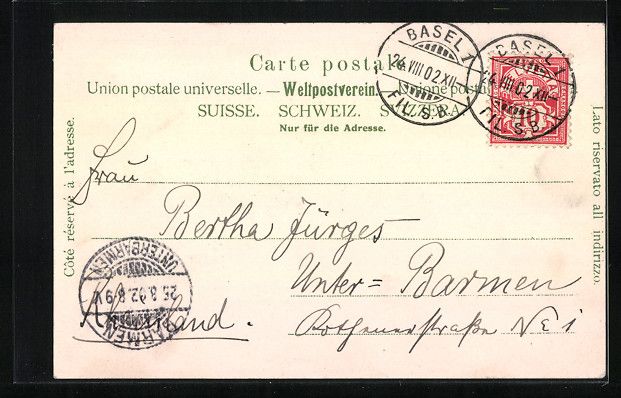 Carte postale.
Union postale universelle. — Weltpostverein.
SUISSE. SCHWEIZ. SVIZZERA.
Nur für die Adresse.
BASEL 1
24.VIII.02.XII
FIL. S.B.
BASEL 1
24.VIII.02.XII
FIL. S.B.
10
Côté réservé à l'adresse.
Lato riservato all indirizzo.
Frau
Bertha Jürges
Unter = Barmen
UNTERBARMEN
25.8.02.8-9V.
BARMEN